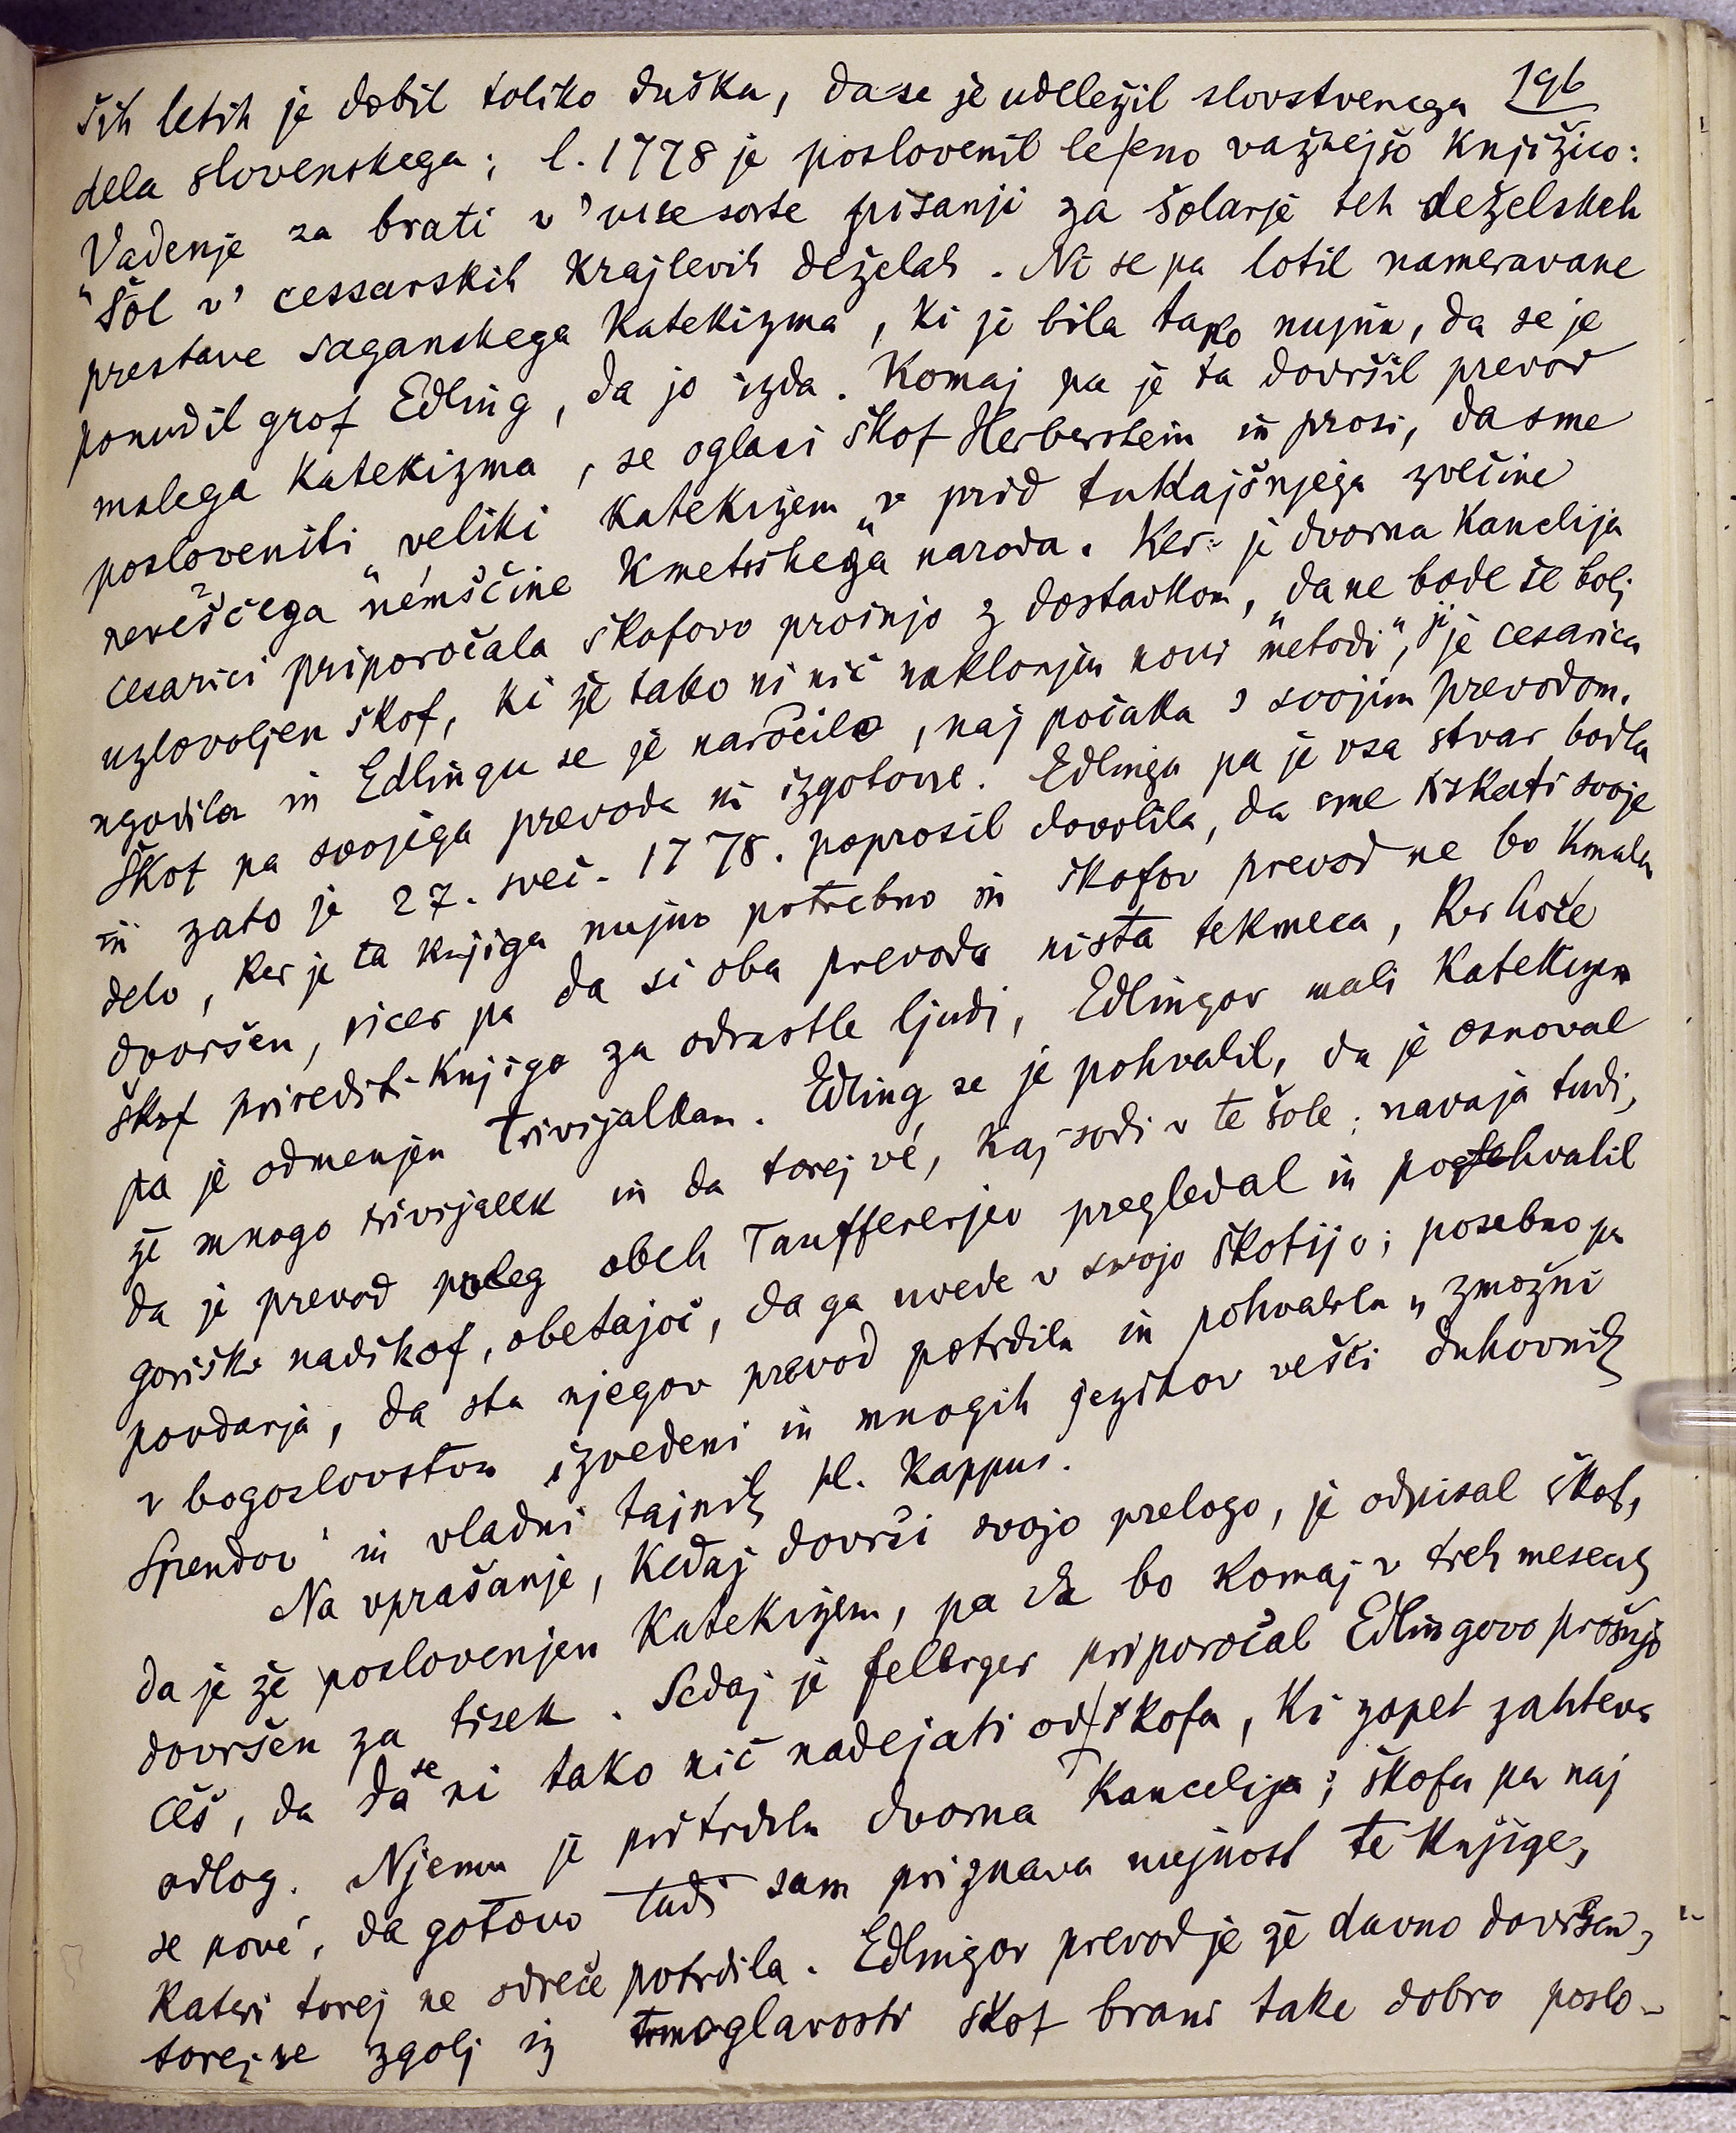 196
ših letih je dobil toliko duška, da se je udeležil slovstvenega
dela slovenskega; l. 1778 je poslovenil le eno važnejšo knjižico:
Vadenje za brati v' vse sorte pisanji za šolarje teh deželskeh
"Šol v' cessarskih krajlevih deželah. Ni se pa lotil nameravane
prestave saganskega katekizma, ki je bila tako nujna, da se je
ponudil grof Edling, da jo izda. Komaj pa je ta dovršil prevod
malega katekizma, se oglasi škof Herberstein in prosi, da sme
posloveniti veliki katekizem „v prid tukajšnjega zvečine
neveščega nemščine kmetskega naroda. Ker je dvorna kancelija
cesarici priporočala škofovo prošnjo z dostavkom, „da ne bode še bolj
uzlovoljen škof, ki je tako ni nič naklonjen novi metodi", ji je cesarica
ugodila in Edlingu se je naročilo, naj počaka s svojim prevodom.
Škof pa svojega prevoda ni izgotovil. Edlinga pa je vsa stvar bodla
in zato je 27. sveč. 1778. poprosil dovolila, da sme tiskati svoje
delo, ker je ta knjiga nujno potrebna in škofov prevod ne bo kmalu
dovršen, sicer pa da si oba prevoda nista tekmeca, ker hoče
škof prirediti knjigo za odrastle ljudi, Edlingov mali katekizem
pa je odmenjen trivijalkam. Edling se je pohvalil, da je osnoval
že mnogo trivijalk in da torej vé, kaj sodi v te šole; navaja tudi,
da je prevod poleg obeh Taufferejev pregledal in pohvalil
goriški nadškof, obetajoč, da ga uvede v svojo škofijo; posebno pa
povdarja, da sta njegov prevod potrdila in pohvalila „zmožni
v bogoslovstvu izvedeni in mnogih jezikov vešči duhovnik
Spendov" in vladni tajnik pl. Kappus.
Na vprašanje, kedaj dovrši svojo prelogo, je odpisal škof,
da je že poslovenjen katekizem, pa da bo komaj v treh mesecih
dovršen za tisek. Sedaj je Felbiger priporočal Edlingovo prošnjo
češ, da da se ni tako nič nadejati od škofa, ki zopet zahteva
odlog. Njemu je pritrdila dvorna kancelija; škofu pa naj
se pové, da gotovo tudi sam priznava nujnost te knjige,
kateri torej ne odreče potrdila. Edlingov prevod je že davno dovršen,
torej se zgolj iz trmoglavosti škof brani take dobro poslo-